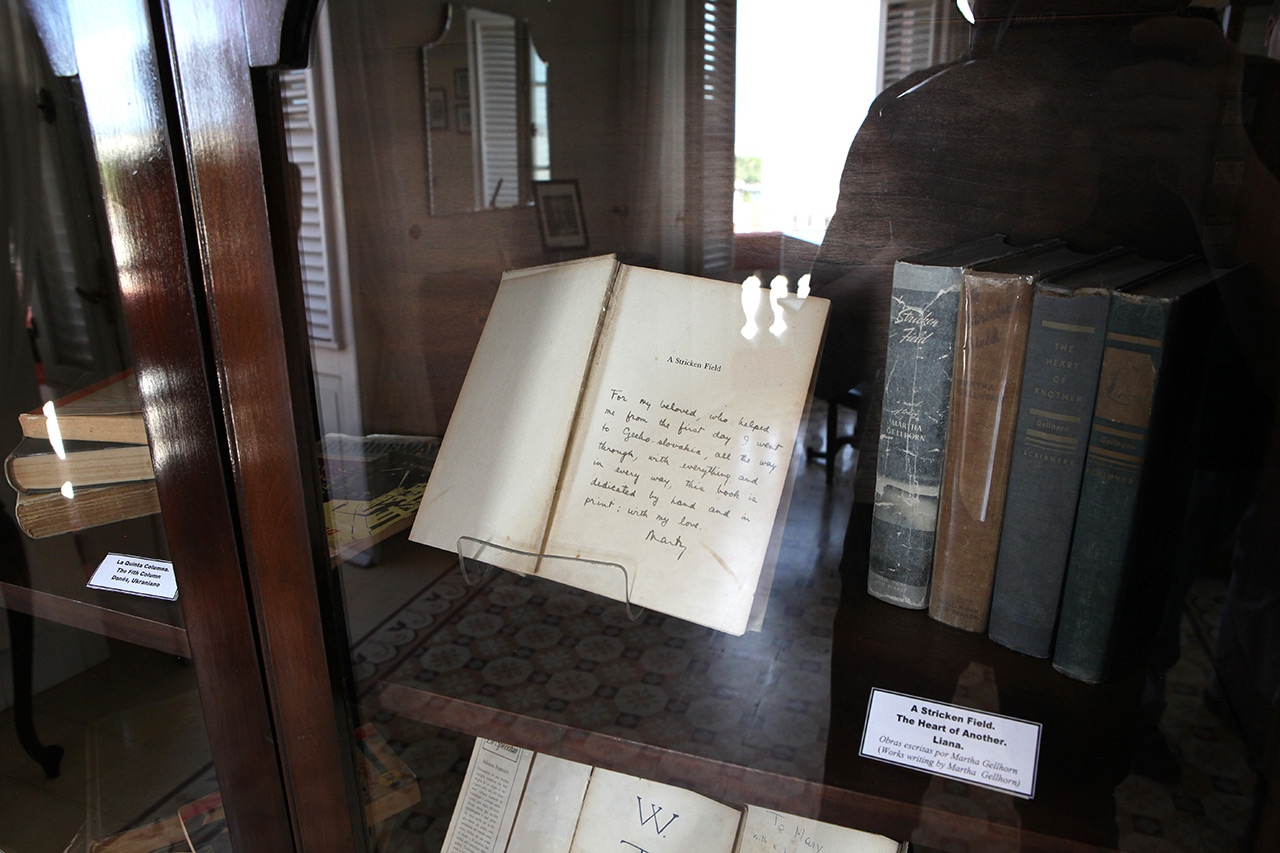 A Stricken Field
For my beloved, who helped
me from the first day I went
to Czecho-slovakia, all the way
through, with everything and
in every way, this book is
dedicated by hand and in
print; with my love.
Marty
Stricken
Field
MARTHA
GELLHORN
THE
HEART OF
ANOTHER
Gellhorn
SCRIBNERS
Gellhorn
La Quinta Columna.
The Fith Column
Danés, Ukraniano
A Stricken Field.
The Heart of Another.
Liana.
Obras escritas por Martha Gellhorn
(Works writing by Martha Gellhorn)
W.
To Mary
with